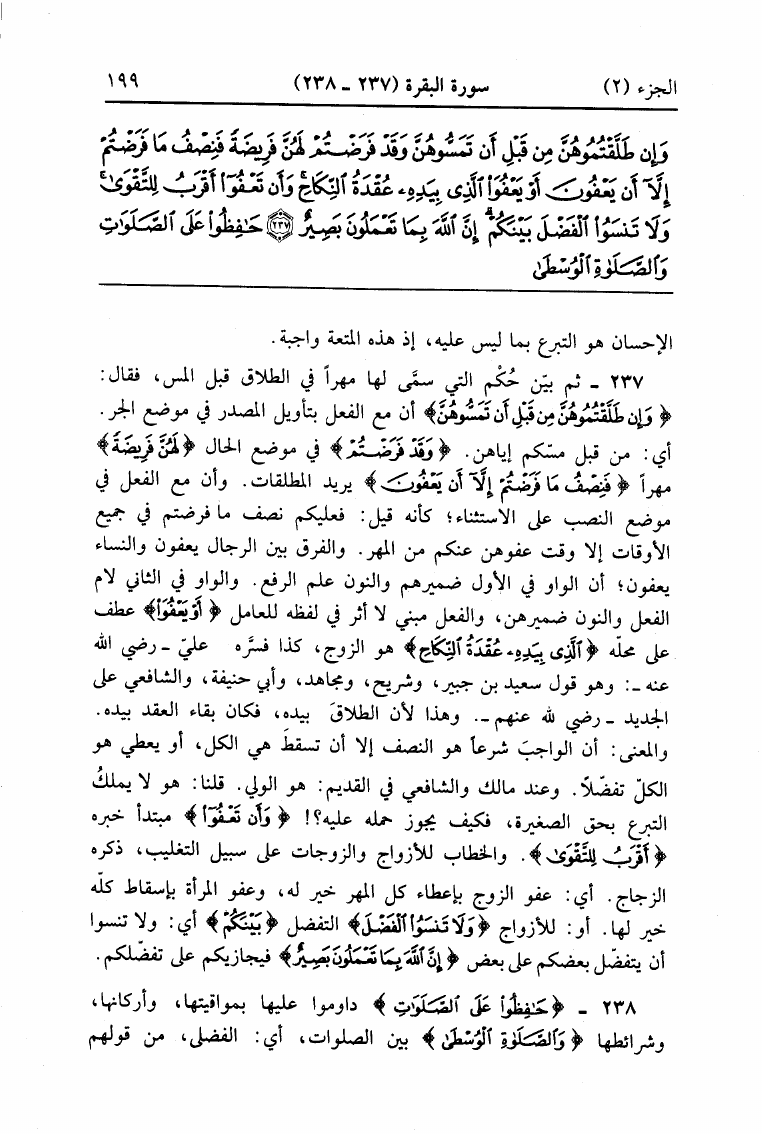 الجزء (٢) سورة البقرة (٢٣٧ ـ ٢٣٨) ١٩٩
وَإِن طَلَّقْتُمُوهُنَّ مِن قَبْلِ أَن تَمَسُّوهُنَّ وَقَدْ فَرَضْتُمْ لَهُنَّ فَرِيضَةً فَنِصْفُ مَا فَرَضْتُمْ
إِلَّآ أَن يَعْفُونَ أَوْ يَعْفُوَا۟ ٱلَّذِى بِيَدِهِۦ عُقْدَةُ ٱلنِّكَاحِ ۚ وَأَن تَعْفُوٓا۟ أَقْرَبُ لِلتَّقْوَىٰ ۚ
وَلَا تَنسَوُا۟ ٱلْفَضْلَ بَيْنَكُمْ ۚ إِنَّ ٱللَّهَ بِمَا تَعْمَلُونَ بَصِيرٌ ﴿٢٣٧﴾ حَٰفِظُوا۟ عَلَى ٱلصَّلَوَٰتِ
وَٱلصَّلَوٰةِ ٱلْوُسْطَىٰ
الإحسان هو التبرع بما ليس عليه، إذ هذه المتعة واجبة.
٢٣٧ ـ ثم بيّن حُكْم التي سمَّى لها مهراً في الطلاق قبل المس، فقال:
﴿وَإِن طَلَّقْتُمُوهُنَّ مِن قَبْلِ أَن تَمَسُّوهُنَّ﴾ أن مع الفعل بتأويل المصدر في موضع الجر.
أي: من قبل مسّكم إياهن. ﴿وَقَدْ فَرَضْتُمْ﴾ في موضع الحال ﴿لَهُنَّ فَرِيضَةً﴾
مهراً ﴿فَنِصْفُ مَا فَرَضْتُمْ إِلَّآ أَن يَعْفُونَ﴾ يريد المطلقات. وأن مع الفعل في
موضع النصب على الاستثناء؛ كأنه قيل: فعليكم نصف ما فرضتم في جميع
الأوقات إلا وقت عفوهن عنكم من المهر. والفرق بين الرجال يعفون والنساء
يعفون؛ أن الواو في الأول ضميرهم والنون علم الرفع. والواو في الثاني لام
الفعل والنون ضميرهن، والفعل مبني لا أثر في لفظه للعامل ﴿أَوْ يَعْفُوَا۟﴾ عطف
على محلّه ﴿ٱلَّذِى بِيَدِهِۦ عُقْدَةُ ٱلنِّكَاحِ﴾ هو الزوج، كذا فسَّره عليّ ـ رضي الله
عنه ـ: وهو قول سعيد بن جبير، وشريح، ومجاهد، وأبي حنيفة، والشافعي على
الجديد ـ رضي لله عنهم ـ. وهذا لأن الطلاقَ بيده، فكان بقاء العقد بيده.
والمعنى: أن الواجبَ شرعاً هو النصف إلا أن تسقطَ هي الكل، أو يعطي هو
الكلّ تفضّلاً. وعند مالك والشافعي في القديم: هو الولي. قلنا: هو لا يملكُ
التبرع بحق الصغيرة، فكيف يجوز حمله عليه؟! ﴿وَأَن تَعْفُوٓا۟﴾ مبتدأ خبره
﴿أَقْرَبُ لِلتَّقْوَىٰ﴾. والخطاب للأزواج والزوجات على سبيل التغليب، ذكره
الزجاج. أي: عفو الزوج بإعطاء كل المهر خير له، وعفو المرأة بإسقاط كلّه
خير لها. أو: للأزواج ﴿وَلَا تَنسَوُا۟ ٱلْفَضْلَ﴾ التفضل ﴿بَيْنَكُمْ﴾ أي: ولا تنسوا
أن يتفضّل بعضكم على بعض ﴿إِنَّ ٱللَّهَ بِمَا تَعْمَلُونَ بَصِيرٌ﴾ فيجازيكم على تفضّلكم.
٢٣٨ ـ ﴿حَٰفِظُوا۟ عَلَى ٱلصَّلَوَٰتِ﴾ داوموا عليها بمواقيتها، وأركانها،
وشرائطها ﴿وَٱلصَّلَوٰةِ ٱلْوُسْطَىٰ﴾ بين الصلوات، أي: الفضلى، من قولهم